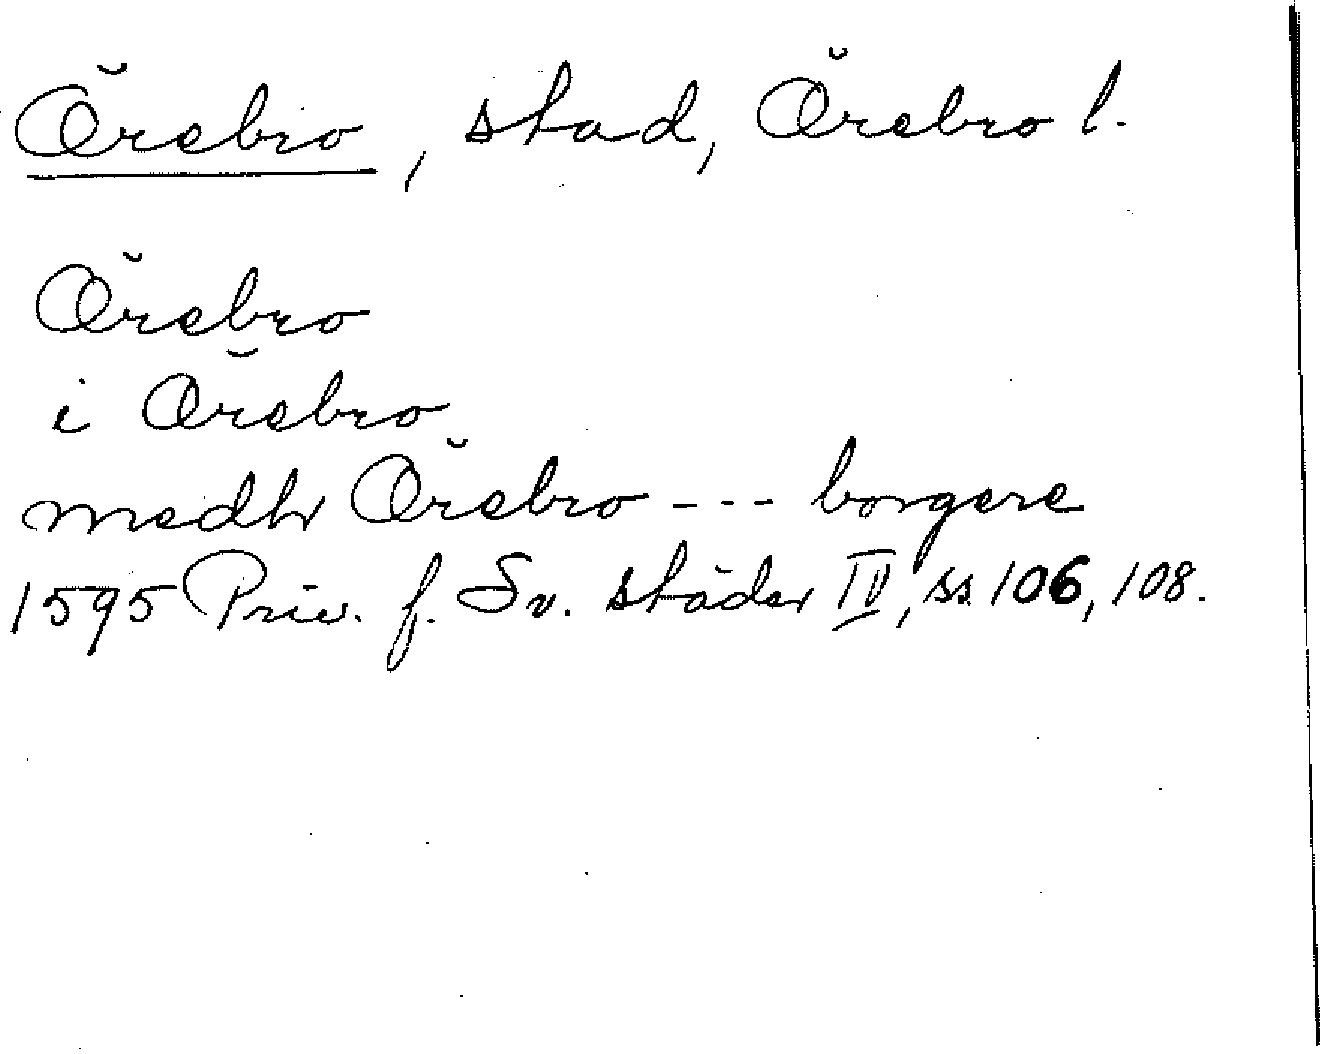 Örebro, stad, Örebro l.
Örebro
i Örebro
medhr Örebro --- borgere
1595 Priv. f. Sv. städer IV, ss 106, 108.